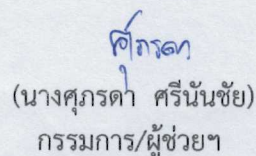 ศุภรดา
(นางศุภรดา ศรีนันชัย)
กรรมการ/ผู้ช่วยฯ